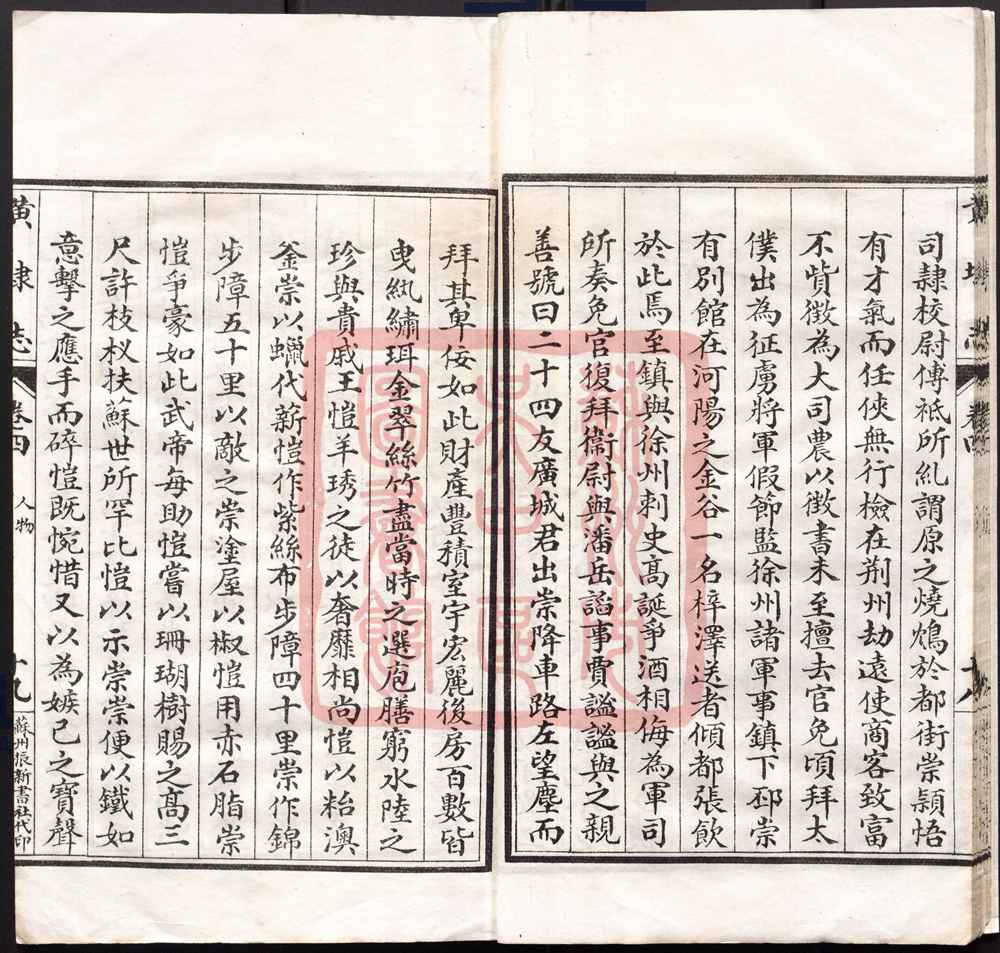 司隸校尉傅祗所糺謂原之燒鴆於都街崇穎悟
有才氣而任俠無行檢在荆州劫遠使商客致富
不貲徵為大司農以徵書未至擅去官免頃拜太
僕出為征虜將軍假節監徐州諸軍事鎮下邳崇
有別館在河陽之金谷一名梓澤送者傾都張飲
於此焉至鎮與徐州刺史高誕爭酒相侮為軍司
所奏免官復拜衞尉與潘岳諂事賈謐謐與之親
善號曰二十四友廣城君出崇降車路左望塵而
拜其卑佞如此財產豐積室宇宏麗後房百數皆
曵紈繡珥金翠絲竹盡當時之選庖膳窮水陸之
珍與貴戚王愷羊琇之徒以奢靡相尚愷以粭澳
釜崇以蠟代薪愷作紫絲布步障四十里崇作錦
步障五十里以敵之崇塗屋以椒愷用赤石脂崇
愷爭豪如此武帝每助愷嘗以珊瑚樹賜之高三
尺許枝杈扶蘇世所罕比愷以示崇崇便以鐵如
意擊之應手而碎愷既惋惜又以為嫉已之寶聲
黄埭志
卷四
人物
十九
蘇州振新書社代印